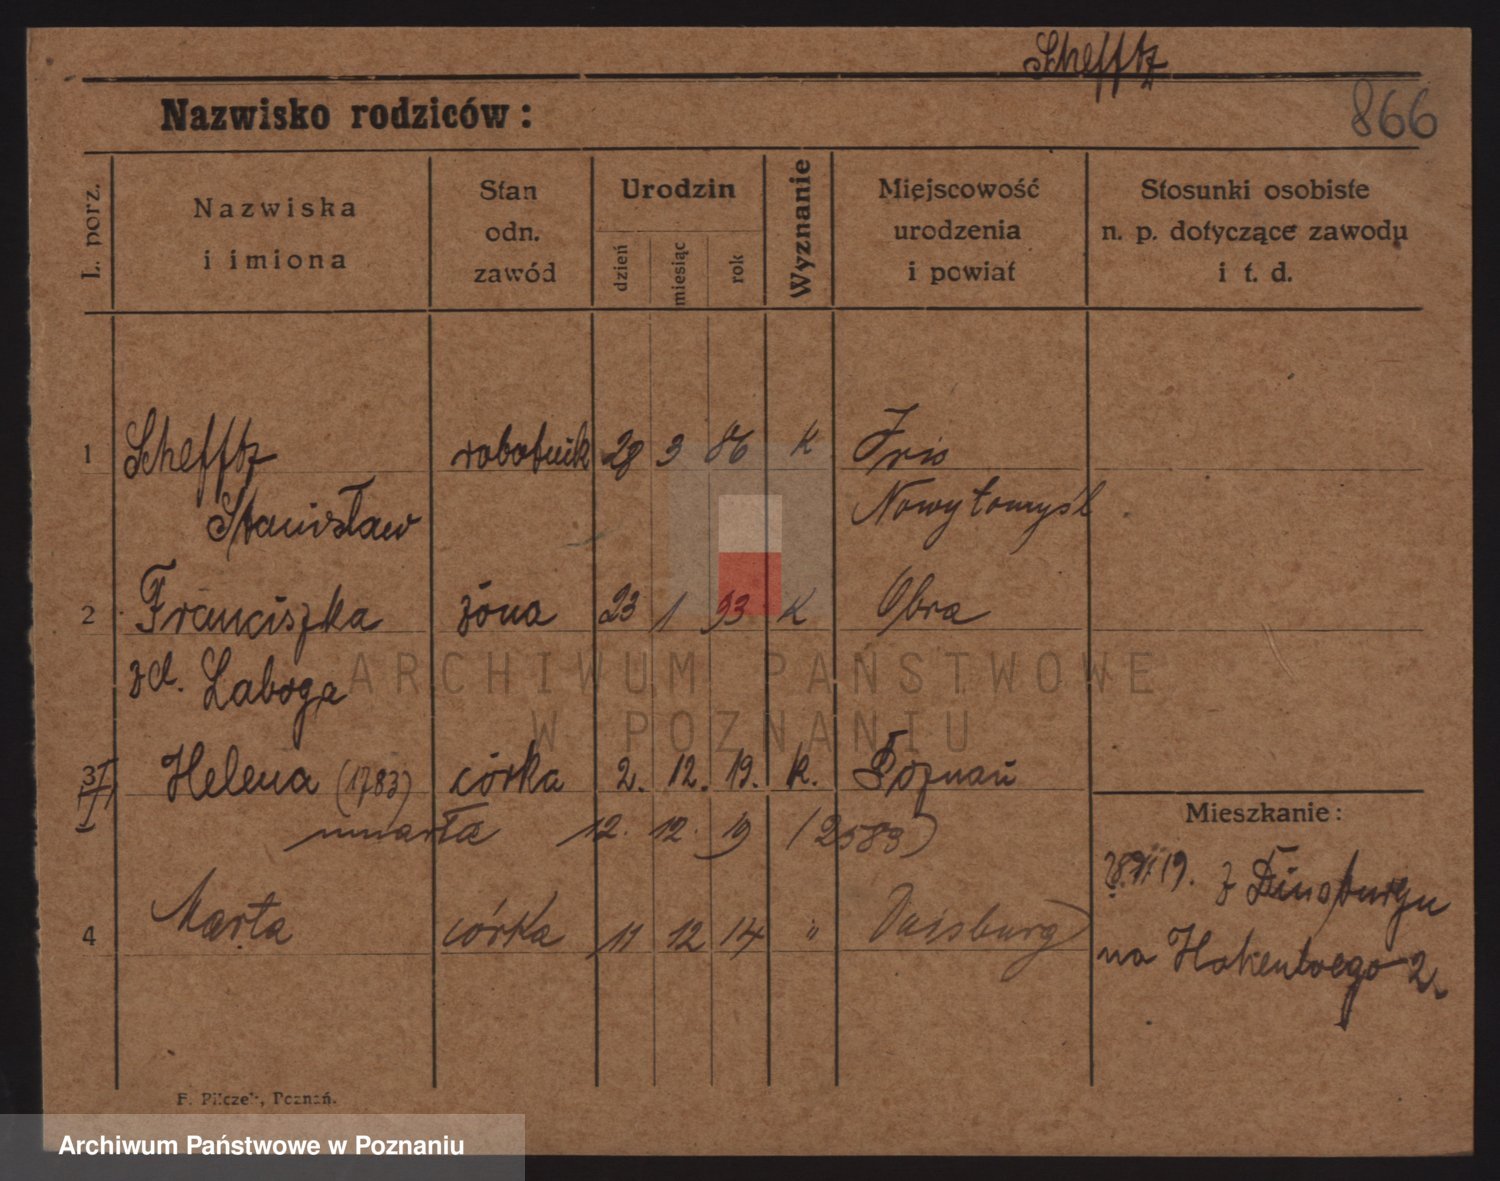 Schefftz
Nazwisko rodziców:
866
L. porz.
Nazwiska
i imiona
Stan
odn.
zawód
Urodzin
dzień
miesiąc
rok
Wyznanie
Miejscowość
urodzenia
i powiat
Stosunki osobiste
n. p. dotyczące zawodu
i t. d.
1 Schefftz robotnik 28 3 86 K
Stanisław Nowytomyśl
2 Franciszka żona 23 1 93 K Obra
zd. Laboga
3 Helena (1783) córka 2. 12. 19. k. Poznań
umarła 12. 12. 19 (2583)
4 Marta córka 11 12 14 " Duisburg
Mieszkanie:
19. z
na 2.
F. Pilczek, Poznań.
ARCHIWUM PAŃSTWOWE
W POZNANIU
Archiwum Państwowe w Poznaniu